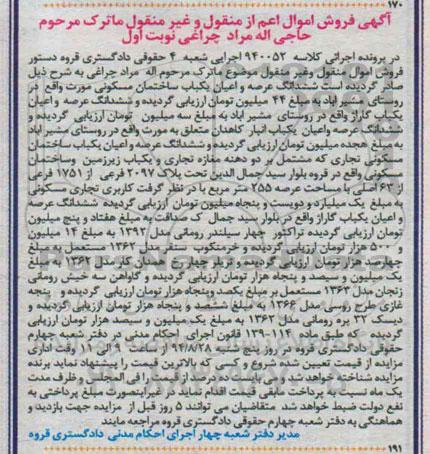 ۱۷۰
آگهی فروش اموال اعم از منقول و غیر منقول ماترک مرحوم
حاجی اله مراد چراغی نوبت اول
در پرونده اجرائی کلاسه ۹۴۰۰۵۲ اجرایی شعبه ۴ حقوقی دادگستری قروه دستور
فروش اموال منقول وغیر منقول موضوع ماترک مرحوم اله مراد چراغی به شرح ذیل
صادر گردیده است ششدانگ عرصه و اعیان یکباب ساختمان مسکونی مورت واقع در
روستای مشیر اباد به مبلغ ۴۴ میلیون تومان ارزیابی گردیده و ششدانگ عرصه و اعیان
یکباب گاراژ واقع در روستای مشیر اباد به مبلغ سه میلیون تومان ارزیابی گردیده و
ششدانگ عرصه واعیان یکباب انبار کاهدان متعلق به مورث واقع در روستای مشیر اباد
به مبلغ هجده میلیون تومان ارزیابی گردیده و ششدانگ عرصه و اعیان یکباب ساختمان
مسکونی تجاری که مشتمل بر دو دهنه مغازه تجاری و یکباب زیرزمین وساختمان
مسکونی واقع در قروه بلوار سید جمال الدین تحت پلاک ۲۰۹۷ فرعی از ۱۷۵۱ فرعی
از ۶۳ اصلی با مساحت عرصه ۲۵۵ متر مربع با در نظر گرفت کاربری تجاری مسکونی
به مبلغ یک میلیارد و دویست و پنجاه میلیون تومان ارزیابی گردیده ششدانگ عرصه
و اعیان یکباب گاراژ واقع در بلوار سید جمال ک صداقت به مبلغ هفتاد و پنج میلیون
تومان ارزیابی گردیده تراکتور چهار سیلندر رومانی مدل ۱۳۹۲ به مبلغ ۱۴ میلیون
و ۵۰۰ هزار تومان ارزیابی گردیده و خرمنکوب سنقر مدل ۱۳۶۲ مستعمل به مبلغ
چهارصد هزار تومان ارزیابی گردیده و تریلر چهار چرخ همدان کار مدل ۱۳۶۲ به مبلغ
یک میلیون و سیصد و پنجاه هزار تومان ارزیابی گردیده و گاواهن سه خیش رومانی
زنجان مدل ۱۳۶۳ مستعمل بر مبلغ یکصد وپنجاه هزار تومان ارزیابی گردیده و پنجه
غازی طرح روسی مدل ۱۳۶۶ به مبلغ ششصد و پنجاه هزار تومان ارزیابی گردیده و
دیسک ۳۲ پره رومانی مدل ۱۳۶۲ به مبلغ یک میلیون و سیصد هزار تومان ارزیابی
گردیده که طبق ماده ۱۱۴-۱۳۹ قانون اجرای احکام مدنی در دفتر شعبه چهارم
حقوقی دادگستری قروه در روز پنج شنبه ۹۴/۸/۲۸ از ساعت ۹ الی ۱۰ وقت اداری
مزایده از قیمت تعیین شده شروع و کسی که بالاترین قیمت را پیشنهاد نماید برنده
مزایده شناخته خواهد شد و می بایست ده درصد از قیمت را فی المجلس و ظرف مدت
یک ماه نسبت به پرداخت مابقی قیمت اقدام نماید در غیراینصورت مبلغ پرداختی به
نفع دولت ضبط خواهد شد متقاضیان می توانند ۵ روز قبل از مزایده جهت بازدید و
هماهنگی به دفتر شعبه چهارم حقوقی دادگستری قروه مراجعه نمایند
مدیر دفتر شعبه چهار اجرای احکام مدنی دادگستری قروه
۱۹۱